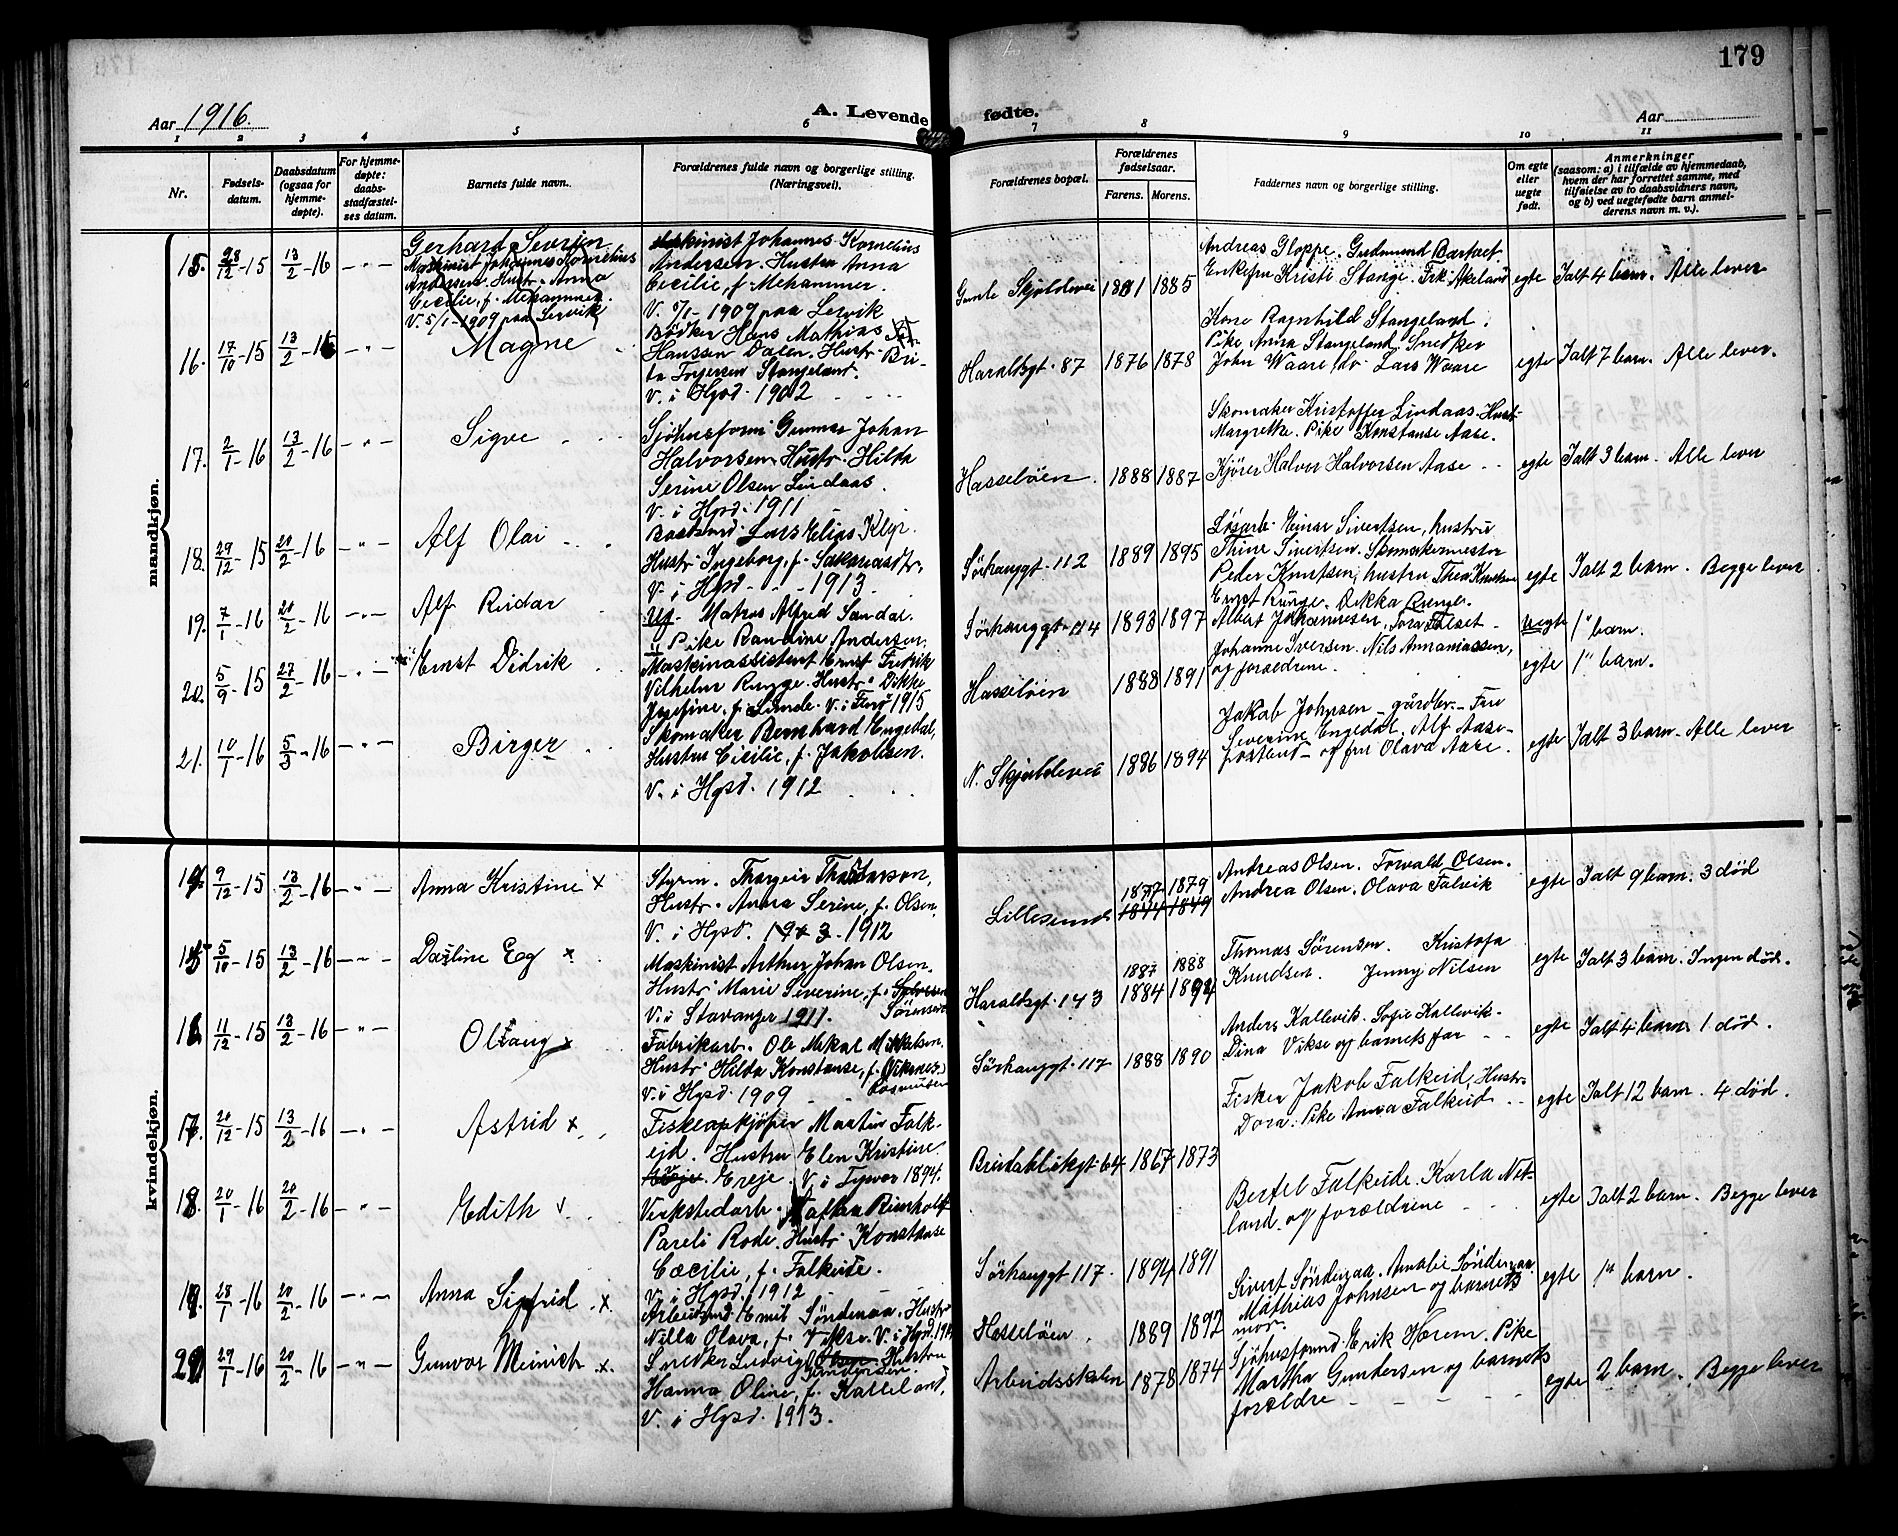 179
Aar 1916.
A. Levende fødte.
Aar
1 2 3 4 5 6 7 8 9 10 11
Nr.
Fødsels-
datum.
Daabsdatum
(ogsaa for
hjemme-
døpte).
For hjemme-
døpte:
daabs-
stadfæstel-
ses datum.
Barnets fulde navn.
Forældrenes fulde navn og borgerlige stilling.
(Næringsvei).
Forældrenes bopæl.
Forældrenes
fødselsaar.
Farens. Morens.
Faddernes navn og borgerlige stilling.
Om egte
eller
uegte
født.
Anmerkninger
(saasom: a) i tilfælde av hjemmedaab,
hvem der har forrettet samme, med
tilføielse av to daabsvidners navn,
og b) ved uegtefødte barn anmel-
derens navn m. v.).
mandkjøn.
15. 28/12-15 13/2-16 - " - Gerhard Severin
Maskinist Johannes Kornelius
Andersen. Hustr. Anna
Cecilie, f. Mehammer.
V. 5/1-1909 paa Lervik
Maskinist Johannes Kornelius
Andersen. Hustru Anna
Cecilie, f. Mehammer.
V. 5/1-1909 paa Lervik
Gamle Skjoldevei 1881 1885
Andreas Gloppe. Gudmund
Enkefru Kristi Stange. Frk. Akeland
egte Ialt 4 barn. Alle lever
16. 17/10-15 13/2-16 - " - Magne
Bødker Hans Mathias
Hanssen Dalen. Hustr. Bri-
ta Torgersen Stangeland.
V. i Hgsd. 1902
Haraldsgt. 87 1876 1878
Kone Ragnhild Stangeland.
Pike Anna Stangeland. Snedker
John Waare. do Lars Waare
egte Ialt 7 barn. Alle lever.
17. 2/1-16 13/2-16 - " - Sigve
Sjøhusform. Gunnar Johan
Halvorsen. Hustr. Hilda
Serine Olsen Lindaas.
V. i Hgsd. 1911
Hasseløen. 1888 1887
Skomaker Kristoffer Lindaas. Hustr.
Margrethe. Pike Konstanse Aase.
Kjører Halvor Halvorsen Aase
egte Ialt 3 barn. Alle lever
18. 29/12-15 20/2-16 - " - Alf Olai
Lars Elias
Hustr. Ingeborg, f.
V. i Hgsd. 1913.
Sørhauggt. 112 1889 1895
Løsarb. Einar Sivertsen, hustru
Thine Sivertsen. Skomakermester
Peder Knutsen, hustru Thea Knutsen
egte Ialt 2 barn. Begge lever
19. 7/1-16 20/2-16 - " - Alf Reidar
Uf. Matros Alfred Sandal.
Pike Randine Andersen
Sørhauggt. 114 1893 1897
Ernst Runge. Dikka Runge.
Albert Johannesen, Tora
uegte 1" barn.
20. 5/9-15 27/2-16 - " - Ernst Didrik
Maskinassistent Ernst Fredrik
Vilhelm Runge. Hustr. Dikke
Josefine, f. Lunde. V. i 1915
Hasseløen 1888 1891
Johanne Iversen. Nils Annaniassen,
og foreldrene.
egte 1" barn.
21. 10/1-16 5/3-16 - " - Birger
Skomaker Bernhard Engedal,
Hustru Cicilie, f. Jakobsen.
V. i Hgsd. 1912
N. Skjoldevei 1886 1894
Jakob Johnsen - gårdbr. - Fru
Severine Engedal. Alf Aase-
- og fru Olava Aase.
egte Ialt 3 barn. Alle lever
kvindekjøn.
14. 9/12-15 13/2-16 - " - Anna Kristine x
Styrm. Thorgeir
Hustr. Anna Serine, f. Olsen.
V. i Hgsd. 1912
Lillesund 1877 1879
Andreas Olsen. Torvald Olsen.
Andrea Olsen. Olava Falvik
egte Ialt 9 barn. 3 død
15 5/10-15 13/2-16 - " - Egx
Maskinist Arthur Johan Olsen.
Hustr. Marie Severine, f.
Sørensen
V. i Stavanger 1911.
Haraldsgt. 143 1887 1888
1884 1894
Thomas Sørensen. Kristofa
Knudsen. Jenny Nilsen
egte Ialt 3 barn. Ingen død.
16. 11/12-15 13/2-16 - " - x
Fabrikarb. Ole Mikal Mikkelsen.
Hustr. Hilda Konstanse, f. (Viksnes)
Rasmussen
V. i Hgsd. 1909
Sørhauggt. 117 1888 1890
Anders Kallevik. Sofie Kallevik.
Dina Vikse og barnets far
egte Ialt 4 barn. 1 død.
17. 20/12-15 13/2-16 - " - Astrid x
Fiskeopkjøper Martin Falk-
ejd. Hustru Elen Kristine
Ereje. V. i Tysvær 1894.
Breidablikgt. 64 1867 1873
Fisker Jakob Falkeid, Hustr.
Dora. Pike Anna Falkeid
egte Ialt 12 barn. 4 død.
18. 20/1-16 20/2-16 - " - Edith x
Verkstedarb. Nathan Reinholdt
Pareli Rode. Hustr. Konstanse
Cæcilie, f. Falkeide.
V. i Hgsd. 1912
Sørhauggt. 117. 1894 1891
Bertel Falkeide. Karla Net-
land og foreldrene
egte Ialt 2 barn. Begge lever
19. 28/1-16 20/2-16 - " - Anna Sigfrid x
Arbeidsmd. Emil Søndenaa. Hustr.
Nilla Olava, f. Vikse. V. i Hgsd.
Hasseløen. 1889 1892
Sivert Søndenaa. Amalie Søndenaa.
Mathias Johnsen og barnets
mor.
egte 1" barn.
20. 29/1-16 20/2-16 - " - Gunvor Meinich x
Snedker Ludvig Olsen Hustru
Gundersen
Hanna Oline, f. Kalleland,
V. i Hgsd. 1913.
Arbeidsskolen 1878 1874
Sjøhusformd. Erik Horem. Pike
Martha Gundersen og barnets
foreldre
egte 2 barn. Begge lever